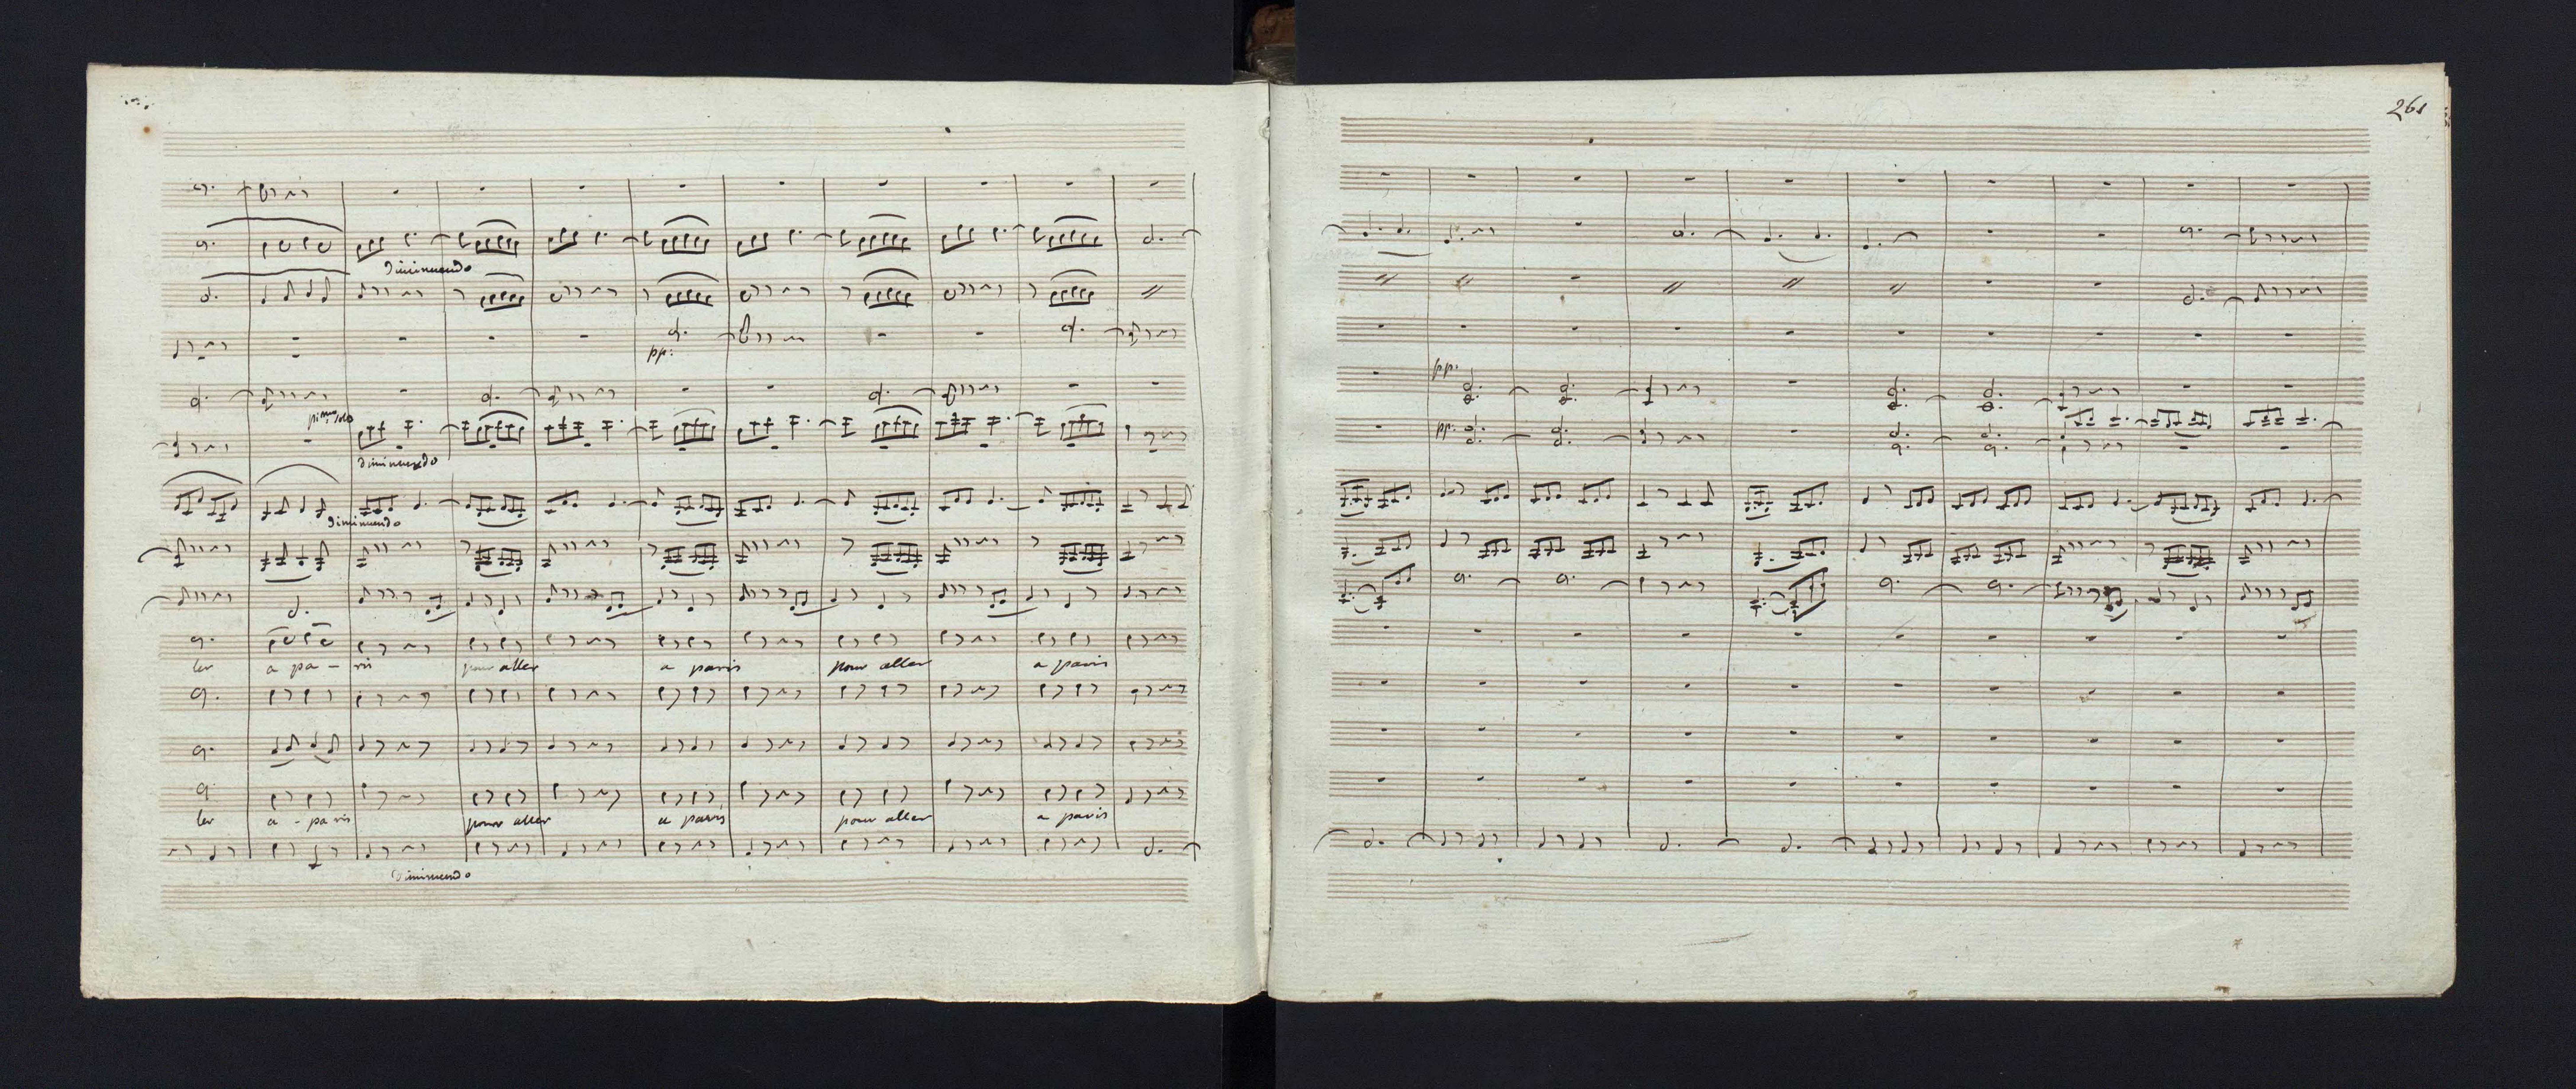 261
diminuendo
pp:
pmo solo
diminuendo
diminuendo
ler a pa - ris pour aller a paris pour aller a paris
ler a - paris pour aller a paris pour aller a paris
diminuendo
pp.
pp.